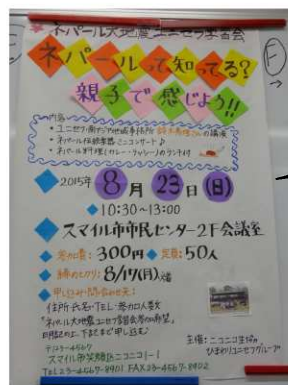 ネパール大地震ユニセフ学習会
ネパールって知ってる?
親子で感じよう!!
内容
• ユニセフ・南アジア地域事務所 さんの講演
• ネパール伝統楽器・ミニコンサート♪
• ネパール料理(カレー・ラッシー)のランチ付
2015年 8月 23日(日)
10:30~13:00
スマイル市市民センター2F会議室
参加費: 300円 定員: 50人
締めきり: 8/17(月)必着
申し込み・問合わせ先:
住所・氏名・TEL・参加人数と
「ネパール大地震ユニセフ学習会参加希望」
明記の上、下記まで申し込む
〒123-4567
スマイル市笑顔区ニコニコ1-1
TEL 23-4567-8901 FAX 23-4567-8902
主催: ニコニコ生協
ひまわりユニセフグループ
F